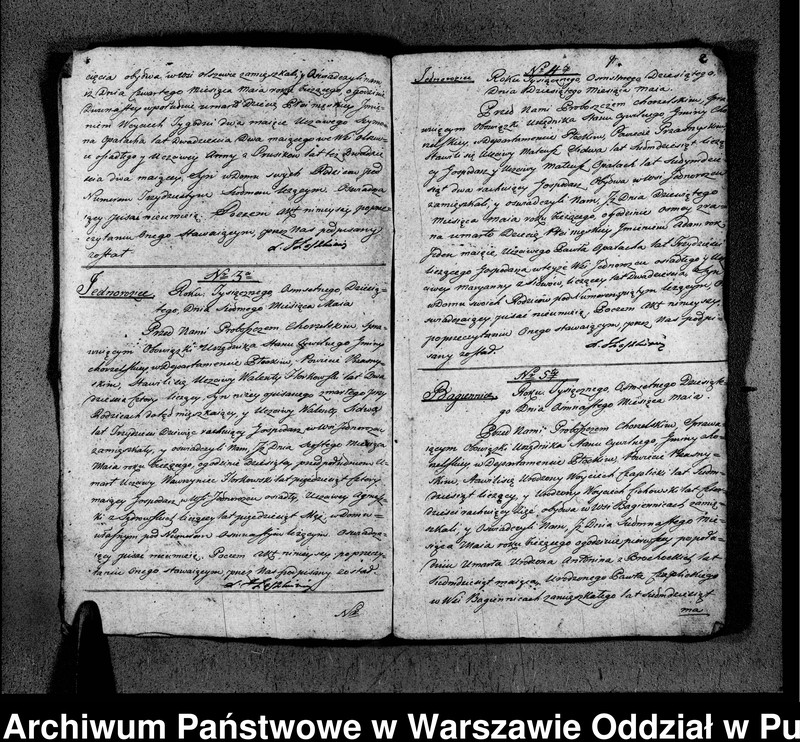 cięcia obydwa w Wsi Olszewie zamięszkali, y Oświadczyli nam
iż Dnia Czwartego Miesiąca Maia roku bieżącego, o godzinie
Dwunastey w południe umarł Dziecię Płci męskiey Jmie-
niem Woyciech Tygodni dwa maiące Uczciwego Szymo-
na Opalacha lat Dwadzieścia Dwa maiącego we Wsi Olszew-
ce osiadłego y Uczciwey Anny z Prusików lat też Dwadzie-
ścia dwa maiącey, Syn w domu swych Rodziców pod
Numerem Trzydziestym Siódmem leżącym. Oświadcza-
iący pisać nieumieią. Poczem Akt ninieyszy po prze-
czytaniu Onego Stawaiącym, przez Nas podpisany
został
Nro 3tio
Jednorożec Roku Tysiącznego Osmsetnego Dziesią-
tego, Dnia Siódmego Miesiąca Maia
Przed Nami Proboszczem Chorzelskim, Spra-
wuiącym Obowiązki Urzędnika Stanu Cywilnego Gminy
Chorzelskiey, w Departamencie Płockim, Powiecie Przasny-
skim, Stawili się Uczciwy Walenty Florkowski lat Dwa-
dzieścia Cztery liczący, Syn niżey opisanego zmarłego przy
Rodzicach dotąd mieszkaiący, y Uczciwy Walenty Sidwa
lat Trzydzieści Dziewięć rachuiący Gospodarz w Wsi Jednorożcu
zamięszkały, y oświadczyli Nam, Jż Dnia Szóstego Miesiąca
Maia roku bieżącego, o godzinie Dziesiątey przed południem U-
marł Uczciwy Wawrzyniec Florkowski lat pięćdziesiąt Cztery
maiący Gospodarz w Wsi Jednorożcu osiadły, Uczciwey Agniesz-
ki z Szymańskich liczącey lat pięćdziesiąt Mąż, w Domu
własnym pod Numerem Osmnastym leżącym Oświadcza-
iący pisać nieumieią. Poczem Akt ninieyszy po przeczy-
taniu Onego stawaiącym, przez Nas podpisany został
Nro
Nro 4to
Jednorożec Roku Tysiącznego Osmsetnego Dziesiątego.
Dnia Dziesiątego Miesiąca Maia.
Przed Nami Proboszczem Chorzelskim, Spra-
wuiącym Obowiązki Urzędnika Stanu Cywilnego Gminy Cho-
rzelskiey, w Departamencie Płockim, Powiecie Przasnyskim
Stawili się Uczciwy Mateusz Sidwa lat Siedmdziesiąt liczą-
cy Gospodarz y Uczciwy Mateusz Opalach lat Siedmdzie-
siąt dwa rachuiący Gospodarz Obydwa w Wsi Jednorożcu
zamięszkali, y oświadczyli Nam, Jż Dnia Dziewiątego
Miesiąca Maia roku bieżącego, o godzinie osmey zra-
na umarło Dziecię Płci męskiey Jmieniem Adam rok
Jeden maiące Uczciwego Pawła Opalacha lat Trzydzieści
liczącego Gospodarza w teyże Wsi Jednorożcu osiadłego y Uczci-
wey Maryanny liczącey lat Dwadzieścia, Syn
w Domu swoich Rodziców pod Numerem leżącym. O-
świadczaiący pisać nieumieią. Poczem Akt ninieyszy
po przeczytaniu Onego stawaiącym, przez Nas podpi-
sany został.
Nro 5to
Bagiennice Roku Tysiącznego, Osmsetnego Dziesiąte-
go Dnia Osmnastego Miesiąca Maia.
Przed Nami Proboszczem Chorzelskim, Sprawu-
iącym Obowiązki Urzędnika Stanu Cywilnego, Gminy Cho-
rzelskiey w Departamencie Płockim, Powiecie Przasny-
skim, Stawili się Urodzony Woyciech Czaplicki lat Siedm-
dziesiąt liczący, y Urodzony Woyciech Cichowski lat Czter-
dzieści rachuiący obydwa w Wsi Bagiennicach zamię-
szkali, y Oświadczyli Nam, Jż Dnia Siedmnastego Mie-
siąca Maia roku bieżącego o godzinie pierwszey po połu-
dniu Umarła Urodzona Antonina z Brocheckich lat
Siedmdziesiąt maiąca, Urodzonego Pawła Czaplickiego
w Wsi Bagiennicach zamięszkałego lat Siedmdziesiąt
ma
Archiwum Państwowe w Warszawie Oddział w Pu